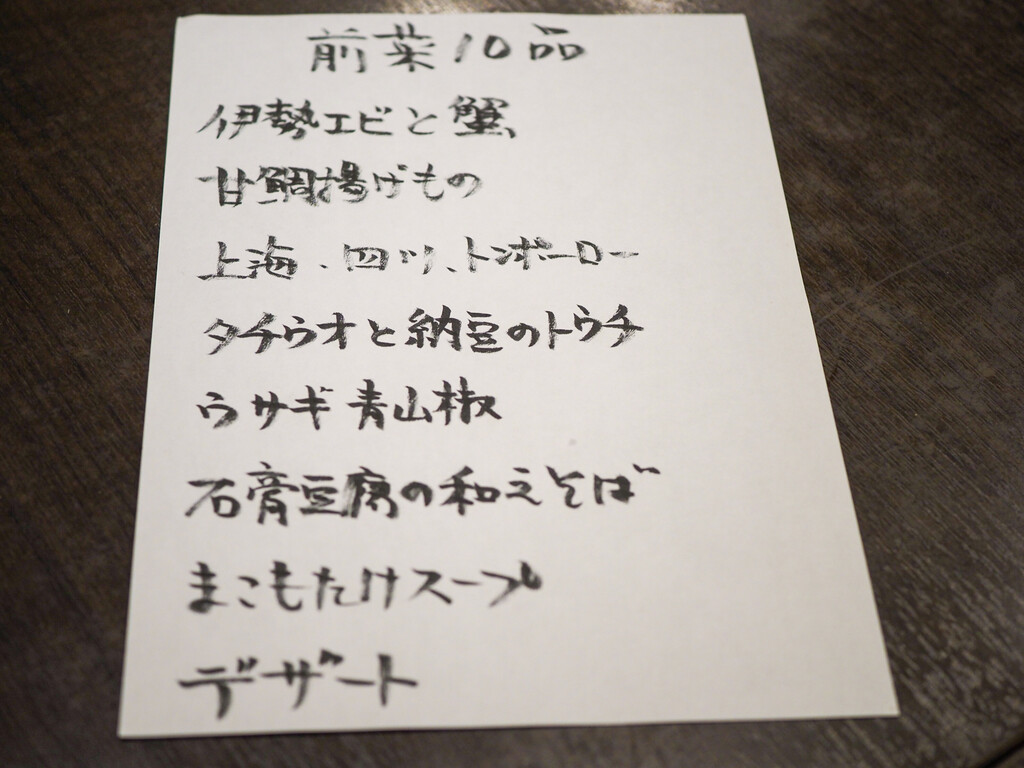 前菜10品
伊勢エビと蟹
甘鯛揚げもの
上海、四川、トンポーロー
タチウオと納豆のトウチ
ウサギ青山椒
石膏豆腐の和えそば
まこもたけスープ
デザート